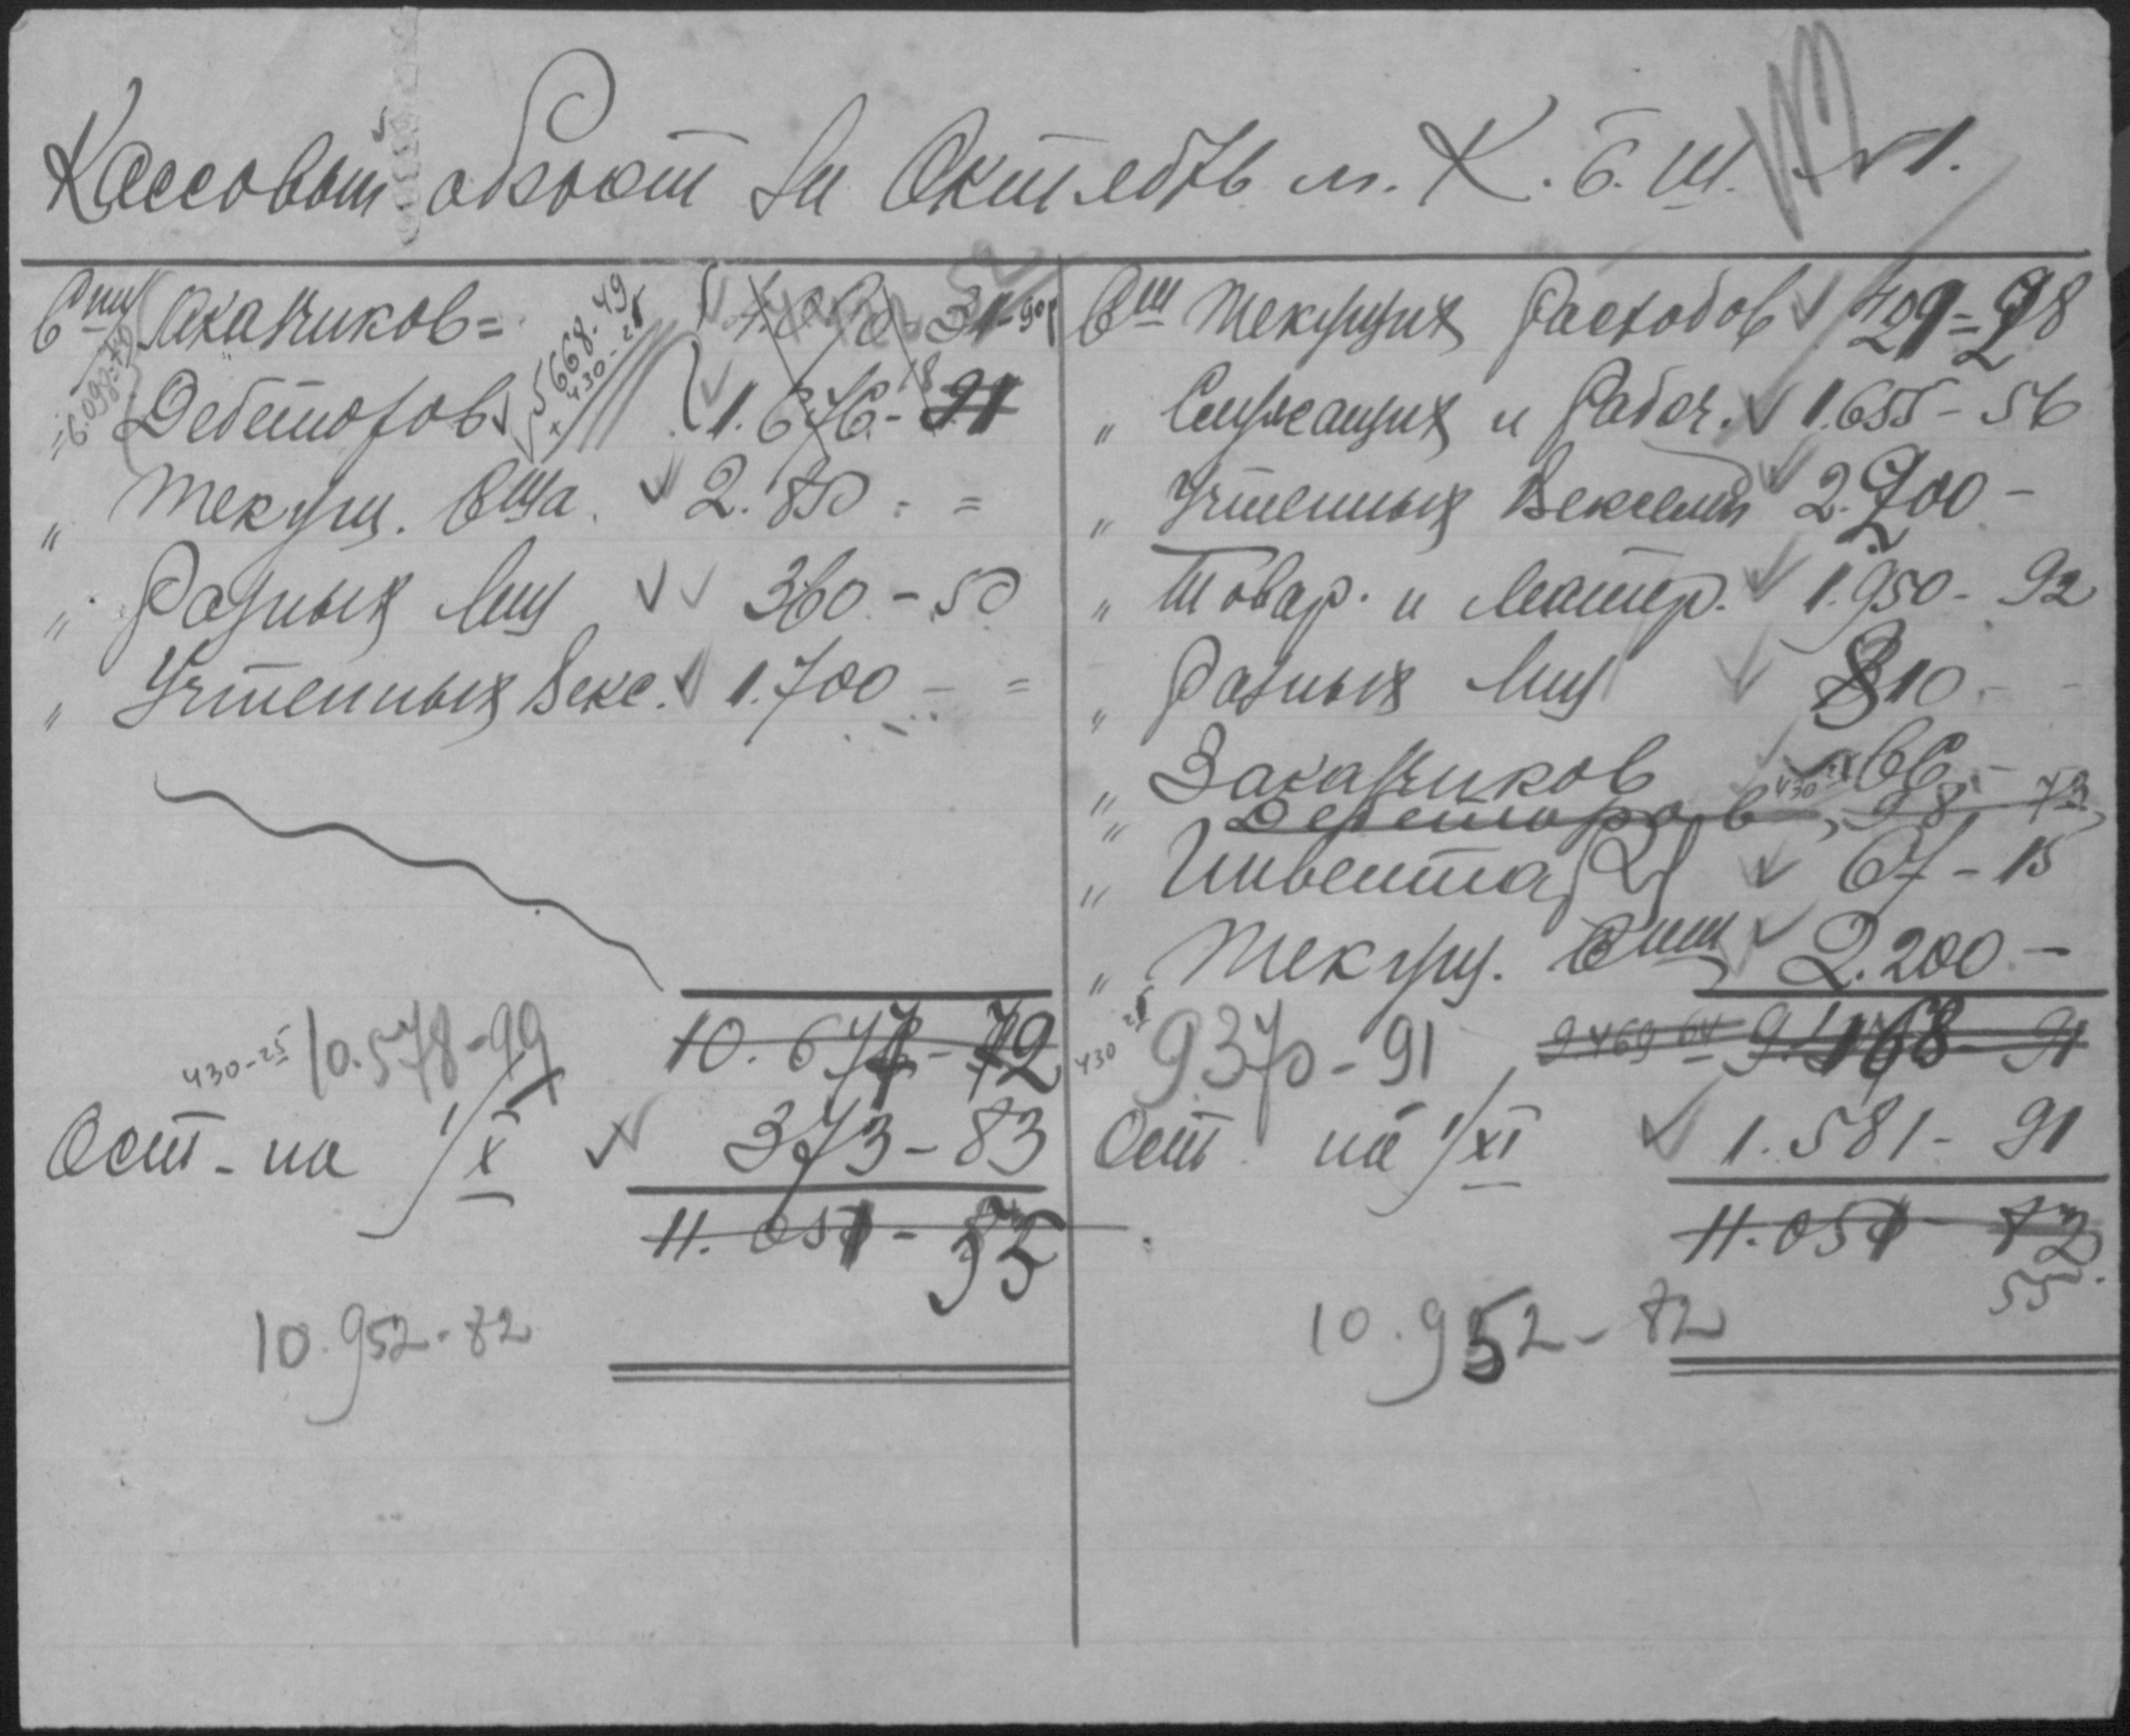 Кассовый оборот за Октябрь м. К. б. ш. № 1.
Сч Заказчиков =
5668-49
+ 430-25
=6.098-74
Дебеторов 1.676-
" Текущ. Сч̲а 2.850 - =
" Разных лиц 360 - 50
" Учтенных Векс. 1.700 - =
430-25 10.578-99 10.677-72
Ост. на 1/X 373-83
11.051-55
10.952-82
Сч Текущих Расходов 429=28
" Служащих и Рабоч. 1.655 - 56
" Учтенных Векселей 2.200 -
" Товар. и Матер. 1.950 - 92
" Разных лиц 810 - -
" Заказчиков 66 -
" Дебеторов 430-25 98 73
" Инвентаря 67 - 15
" Текущ. Счет 2.200 -
430-25 9370-91 9469 64 9.168-91
Ост на 1/XI 1.581- 91
11.051-72
55
10.952-82